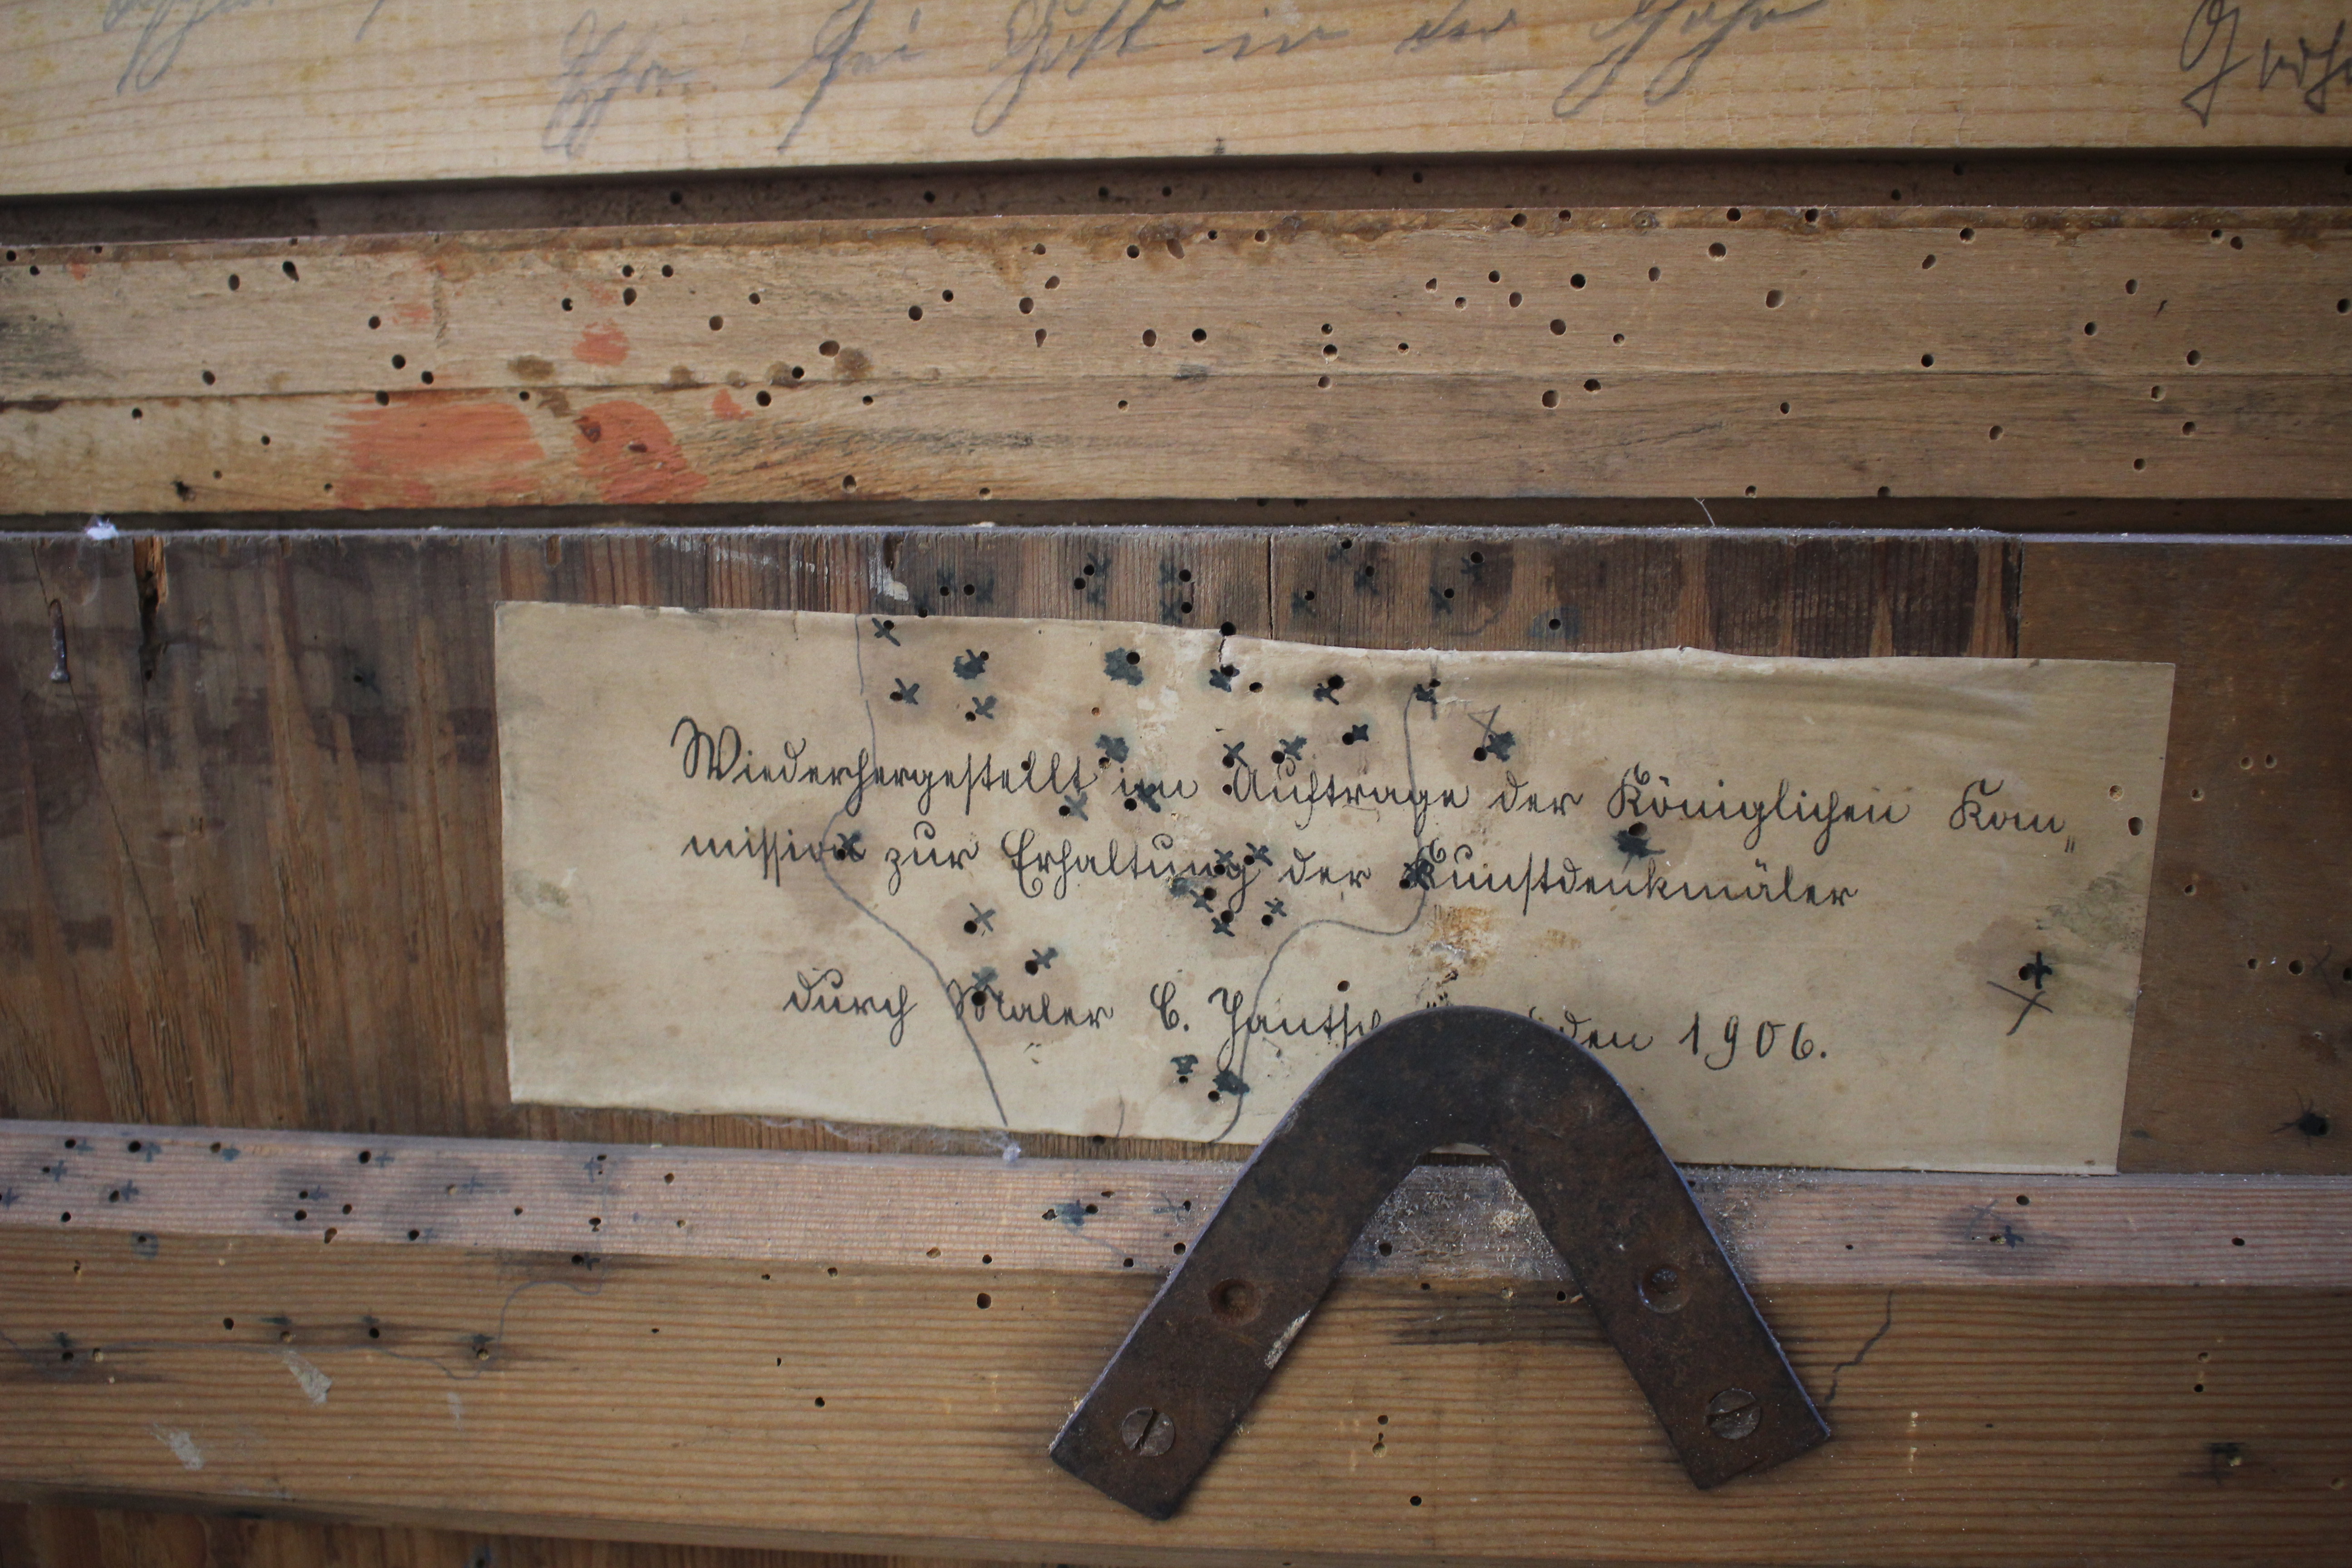 Ehre sei Gott in der Höhe
Wiederhergestellt im Auftrage der Königlichen Kom„
mission zur Erhaltung der Kunstdenkmäler
durch Maler C. Jantsch den 1906.